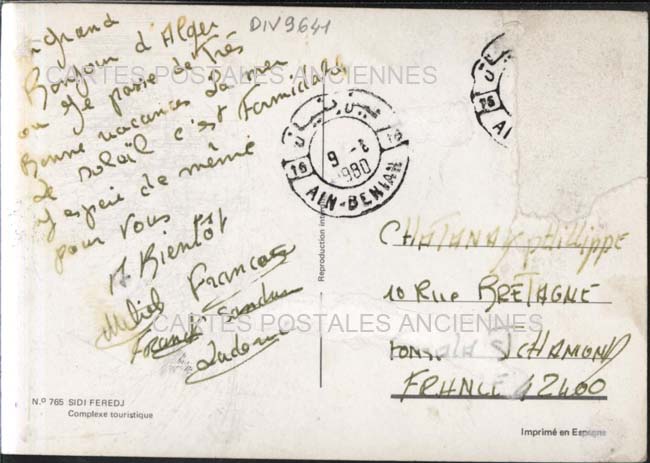 DIV9641
un grand
Bonjour d'Alger
ou Je passe de Très
Bonne vacances La mer
Le soleil c'est Formidable
J'espère de même
pour Vous
A Bientôt
Francoise
Franck Sandra
CARTES POSTALES ANCIENNES
16
16
9 -8
1980
AIN-BENIAN
عين بنيان
16
AI
Reproduction inter
CHATANAY Philippe
10 Rue BRETAGNE
ST CHAMOND
FRANCE 42400
CARTES POSTALES ANCIENNES
N.º 765 SIDI FEREDJ
Complexe touristique
Imprimé en Espagne